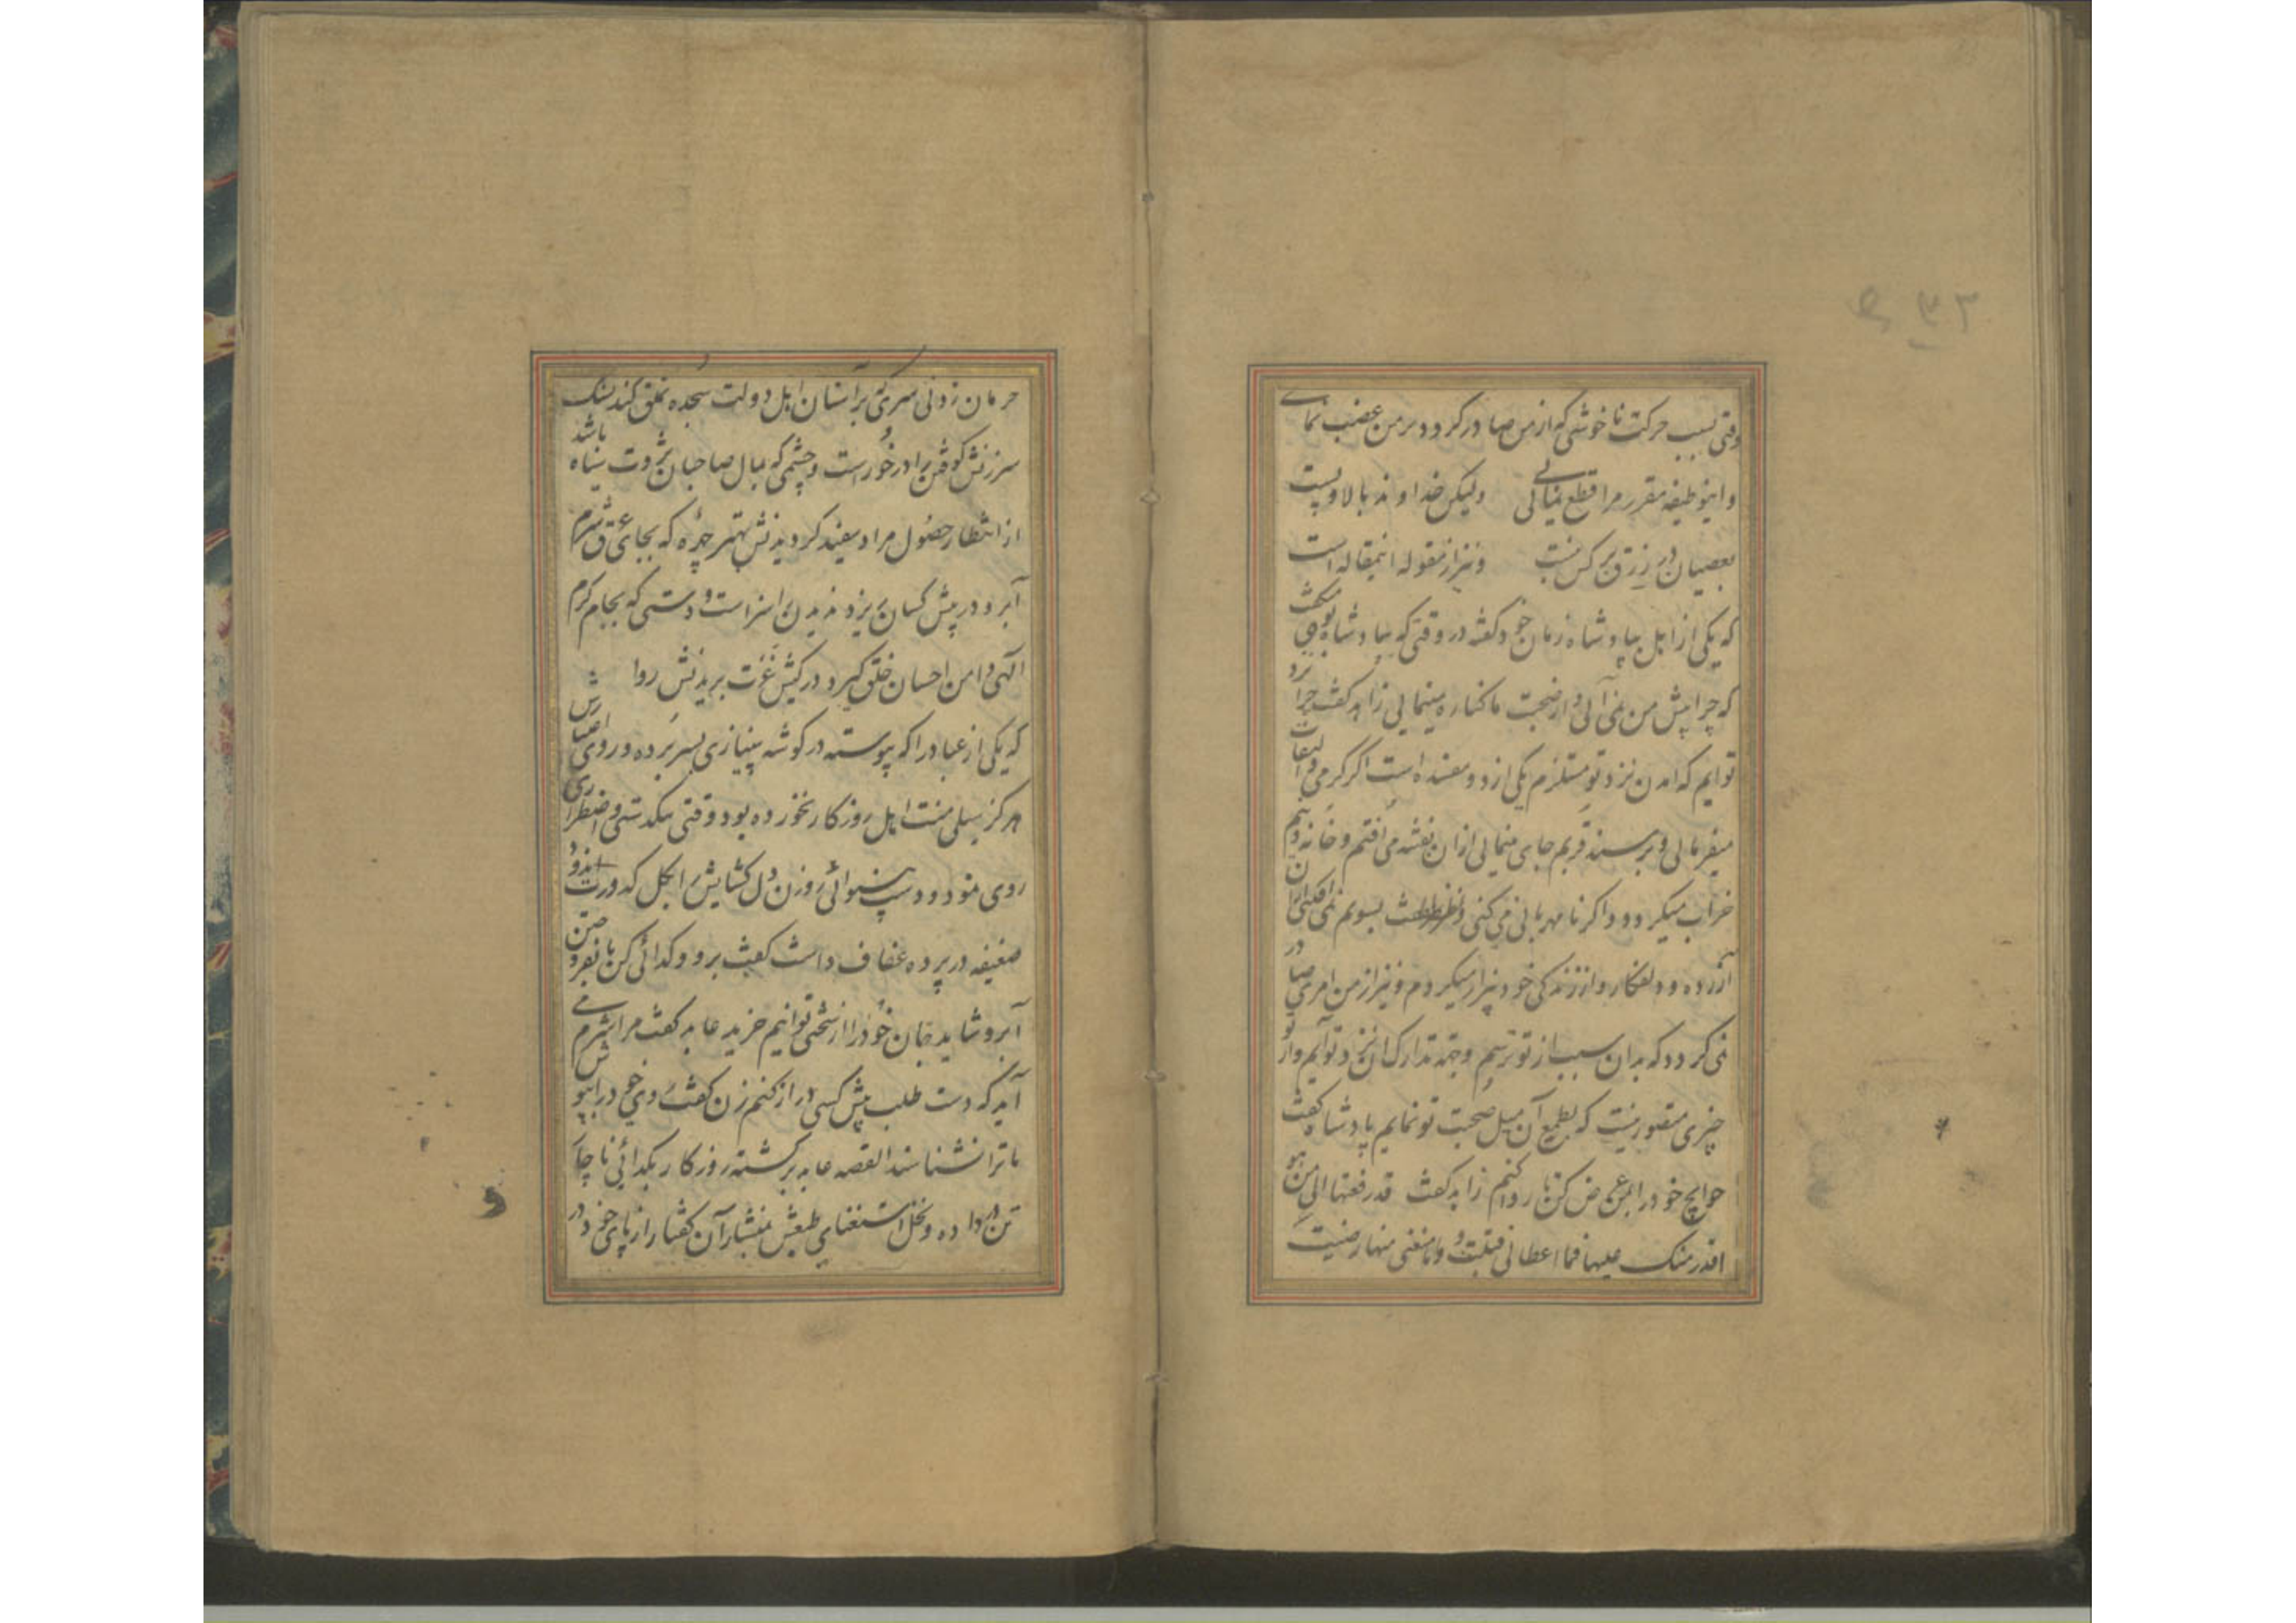 وقتی بسبب حرکت ناخوشی که از من صادر کردد بر من غضب نمای
و اینوظیفه مقرر مرا قطع نمائی ولیکن خداوند بالا و پست
بعصیان در رزق بر کس نبست و نیز از مقوله اینمقاله است
که یکی از اهل بپادشاه زمان خود گفته در وقتی که پادشاه
که چرا پیش من نمی آئی و از صحبت ما کناره مینمایی زاهد کفت چرا
توایم که امدن نزد تو مستلزم یکی از دو مفسده است اکر کرمی و التفات
میفرمائی و بر مسند قربم جای مینمایی ازان بفتنه می افتم و خانه دینم
خراب میکردد و اکر نامهربانی می کنی و نظر بسویم نمی افکنی ازان
آزرده و دلفکار و از زندکی خود بیزار میکردم و نیز از من امری صادر
نمی کردد که بدان سبب از تو ترسم و بجهة تدارک آن نزد تو آیم و از تو
چیزی متصور نیست که بطمع آن میل صحبت تو نمایم پادشاه کفت
حوایج خود را بمن عرض کن تا روا کنم زاهد کفت قد رفعتها الی من هو
اقدر منک علیها فما اعطانی قبلت و ما منعنی منها رضیت
حرمان زدنی سری که بر آستان اهل دولت سجده تملق کند سنک
سرزنش کوفتن را در خورست و چشمی که بمال صاحبان ثروت سیاه باشد
از انتظار حصول مراد سفید کردیدنش بهتر چهره که بجای عرق شرم
آبرو در پیش کسان ریزد ندیدن را سزاست و دستی که بجام کرم
الهی دامن احسان خلق کیرد در کیش عزت بریدنش روا
که یکی از عباد را که پیوسته در کوشه بینیازی بسر برده و روی اعتبارش
هرکز سیلی منت اهل روزکار نخورده بود وقتی تنکدستی و اضطراری
روی نمود و دست بینوائی روزن دل کشایش را بکل کدورت اندود
ضعیفه در پرده عفاف داشت کفت برو و کدائی کن تا بفروختن
آبرو شاید جان خود را از سختی توانیم خرید عابد کفت مرا شرم می
آید که دست طلب پیش کسی دراز کنم زن کفت روی خود را بپوش
تا ترا نشناسند القصه عابد برکشته روزکار بکدائی ناچار
تن در داده و نخل استغنای طبعش بمنشار آن کفتار از پای خود در